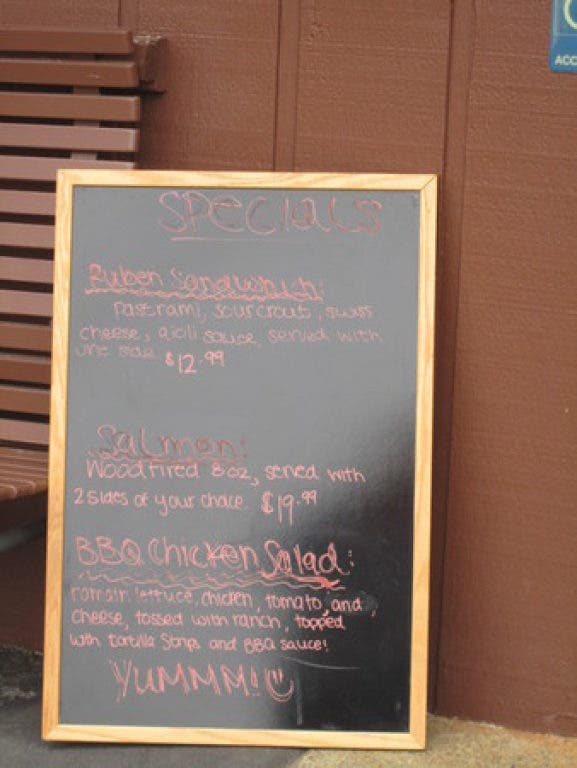 ACC
SPECIALS
Ruben Sandwhich:
pastrami, sourcrout, swiss
cheese, aioli sauce, served with
one side $12.99
Salmon:
Woodfired 8oz, served with
2 sides of your choice $19.99
BBQ Chicken Salad:
romain lettuce, chicken, tomato, and
cheese, tossed with ranch, topped
with tortilla Strips and BBQ sauce!
YUMMM!